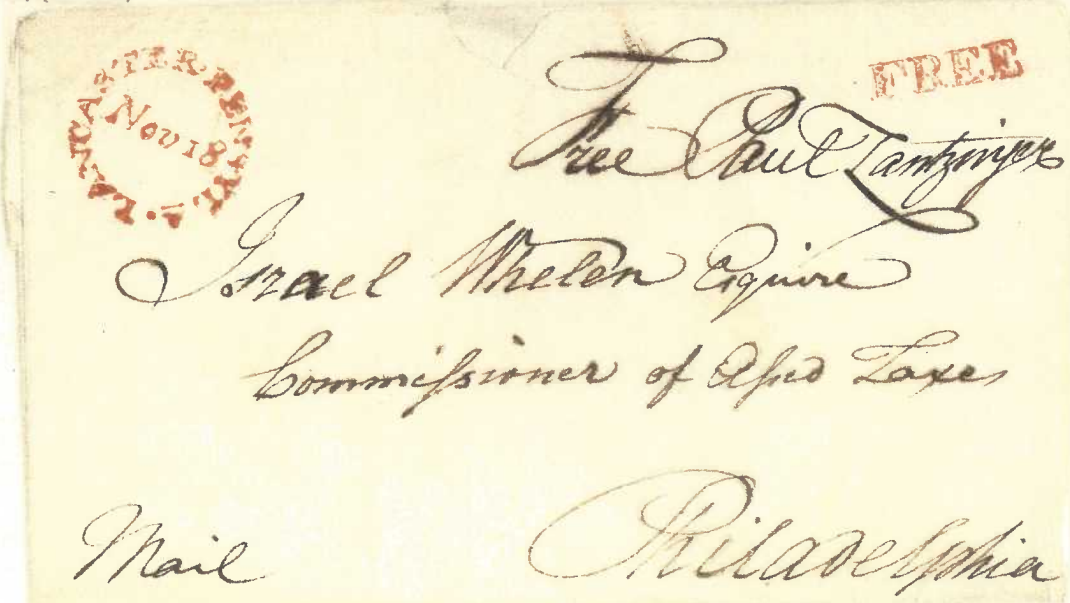 LANCASTER·PENNYL·A·
Nov 18
FREE
Free Paul Zantzinger
Israel Whelen Esquire
Commiſsioner of Aſsd Taxes
Mail
Philadelphia